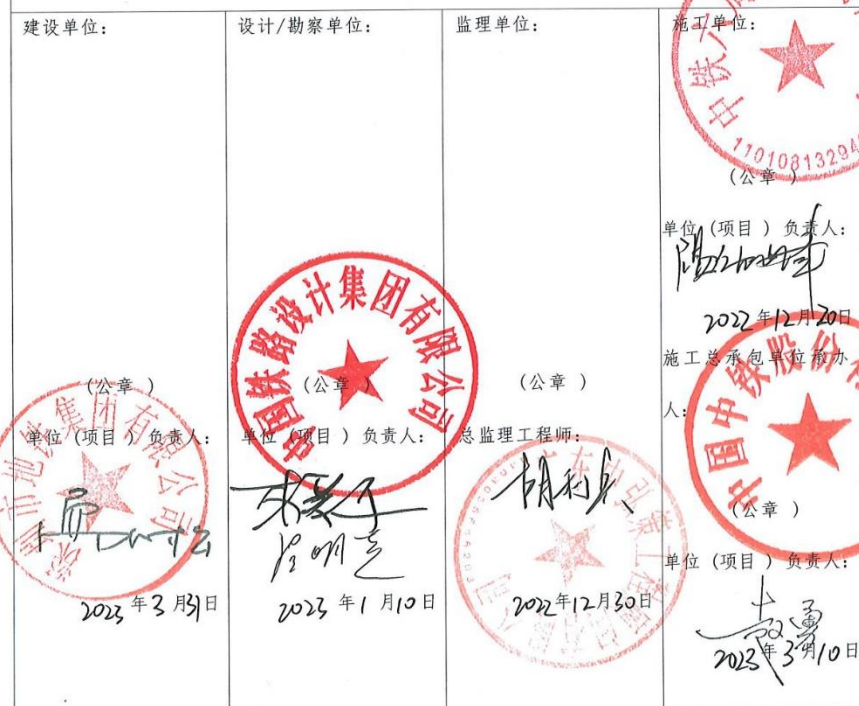 建设单位：
（公章 ）
单位（项目 ）负责人：
深圳市地铁集团有限公司
2023年3月31日
设计/勘察单位：
（公章 ）
中国铁路设计集团有限公司
单位（项目 ）负责人：
2023年1月10日
监理单位：
（公章 ）
总监理工程师：
胡利民
2022年12月30日
施工单位：
中铁六局
11010813294
（公章 ）
单位（项目 ）负责人：
2022年12月20日
施工总承包单位承办
人：
中国中铁股份有
（公章 ）
单位（项目 ）负责人：
2023年3月10日